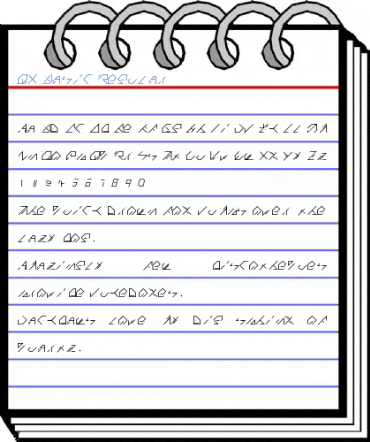 Regular
Aa Bb Cc Dd Ee Ff Gg Hh Ii Jj Kk Ll Mm
Nn Oo Pp Qq Rr Ss Tt Uu Vv Ww Xx Yy Zz
1 2 3 4 5 6 7 8 9 0
The quick brown fox jumps over the
lazy dog.
Amazingly few discotheques
provide jukeboxes.
Jackdaws love my big sphinx of
quartz.